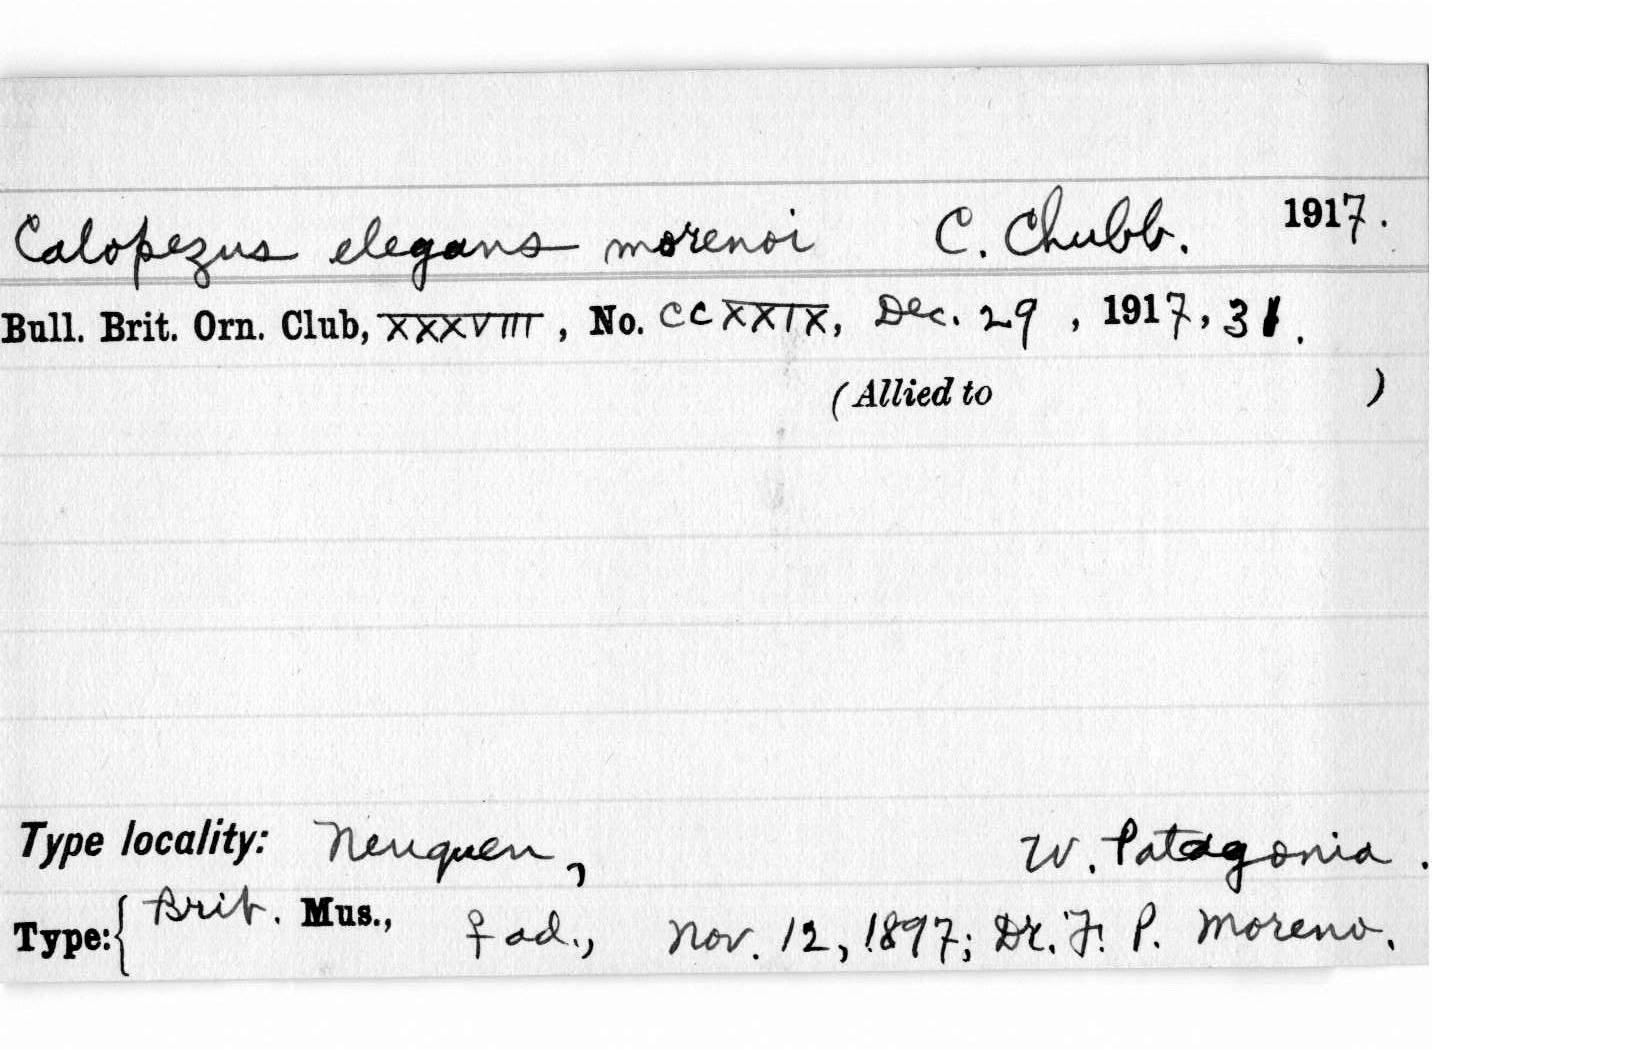 Calopezus elegans morenoi C. Chubb. 1917.
Bull. Brit. Orn. Club, XXXVIII, No. CCXXIX, Dec. 29, 1917, 31.
(Allied to )
Type locality: Neuquen, W. Patagonia.
Type: { Brit. Mus., ♀ ad., Nov. 12, 1897; Dr. F. P. Moreno.